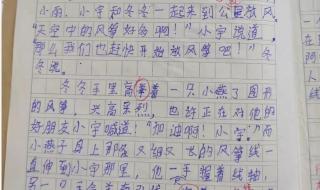 小丽、小宇和冬冬一起来到公园放风
"天空中的风筝好多啊!"小宇说道,
"那么我们也赶快开始放风筝吧!"冬
冬说。
冬冬手里高举着一只小燕子图形
的风筝,兴高采烈,也许正在对他的
好朋友小宇喊道:"加油啊!小宇"而
小燕子身上那条又细又长的风筝线一
直伸到小宇那里,他一手握着线轴,